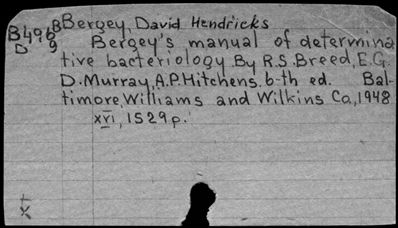 B498 Bergey, David Hendricks
D 9 Bergey's manual of determina
tive bacteriology By R.S.Breed, E.G.
D.Murray, A.P.Hitchens. 6-th ed. Bal-
timore, Williams and Wilkins Co, 1948
xvi, 1529p.
+
X